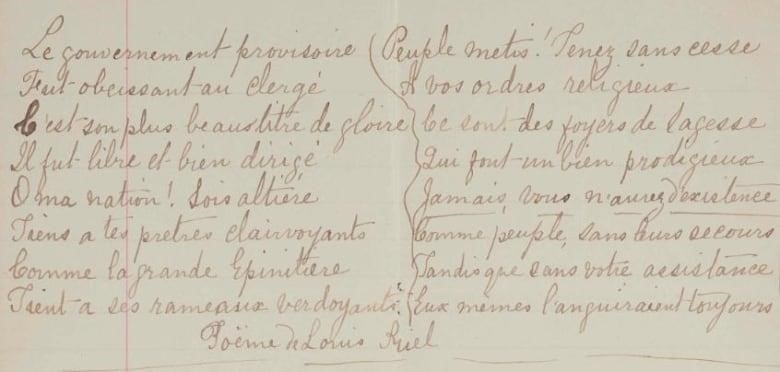 Le gouvernement provisoire
Fut obeissant au clergé
C'est son plus beau titre de gloire
Il fut libre et bien dirigé
O ma nation! Sois altière
Tiens a tes prêtres clairvoyants
Comme la grande Epinitiere
Tient a ses rameaux verdoyants.
Peuple metis! Tenez sans cesse
A vos ordres religieux
Ce sont des foyers de sagesse
Qui font un bien prodigieux
Jamais vous n'aurez d'existence
Comme peuple, sans leurs secours
Tandis que sans votre assistance
Eux mêmes languiraient toujours
Poëme de Louis Riel